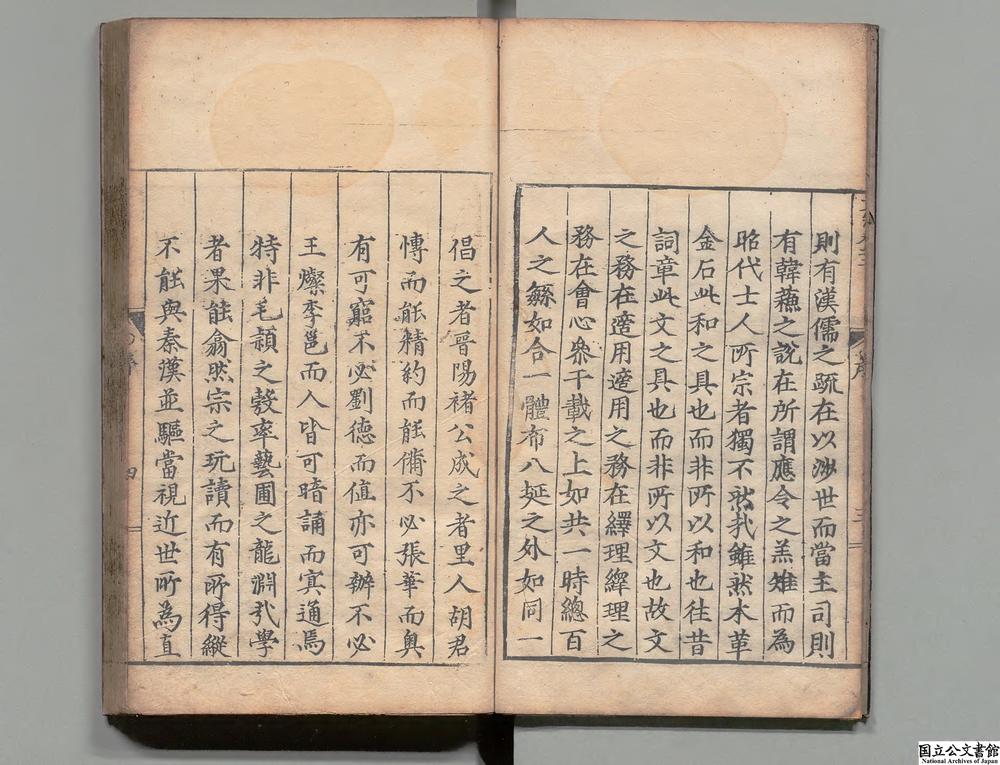 則有漢儒之疏在以涉世而當主司則
有韓蘓之說在所謂應令之羔雉而為
昭代士人所宗者獨不然㢤雖然木革
金石此和之具也而非所以和也徃昔
詞章此文之具也而非所以文也故文
之務在適用適用之務在繹理繹理之
務在會心衆千載之上如共一時總百
人之繇如合一體布八埏之外如同一
倡之者晉陽褚公成之者里人胡君
愽而能精約而能備不必張華而奧
有可窮不必劉德而值亦可辦不必
王燦李邕而人皆可暗誦而寘通焉
特非毛頴之彀率藝圃之龍淵㢤學
者果能翕然宗之玩讀而有所得縱
不能與秦漢並驅當視近世所為直
序
三
序
四
国立公文書館
National Archives of Japan